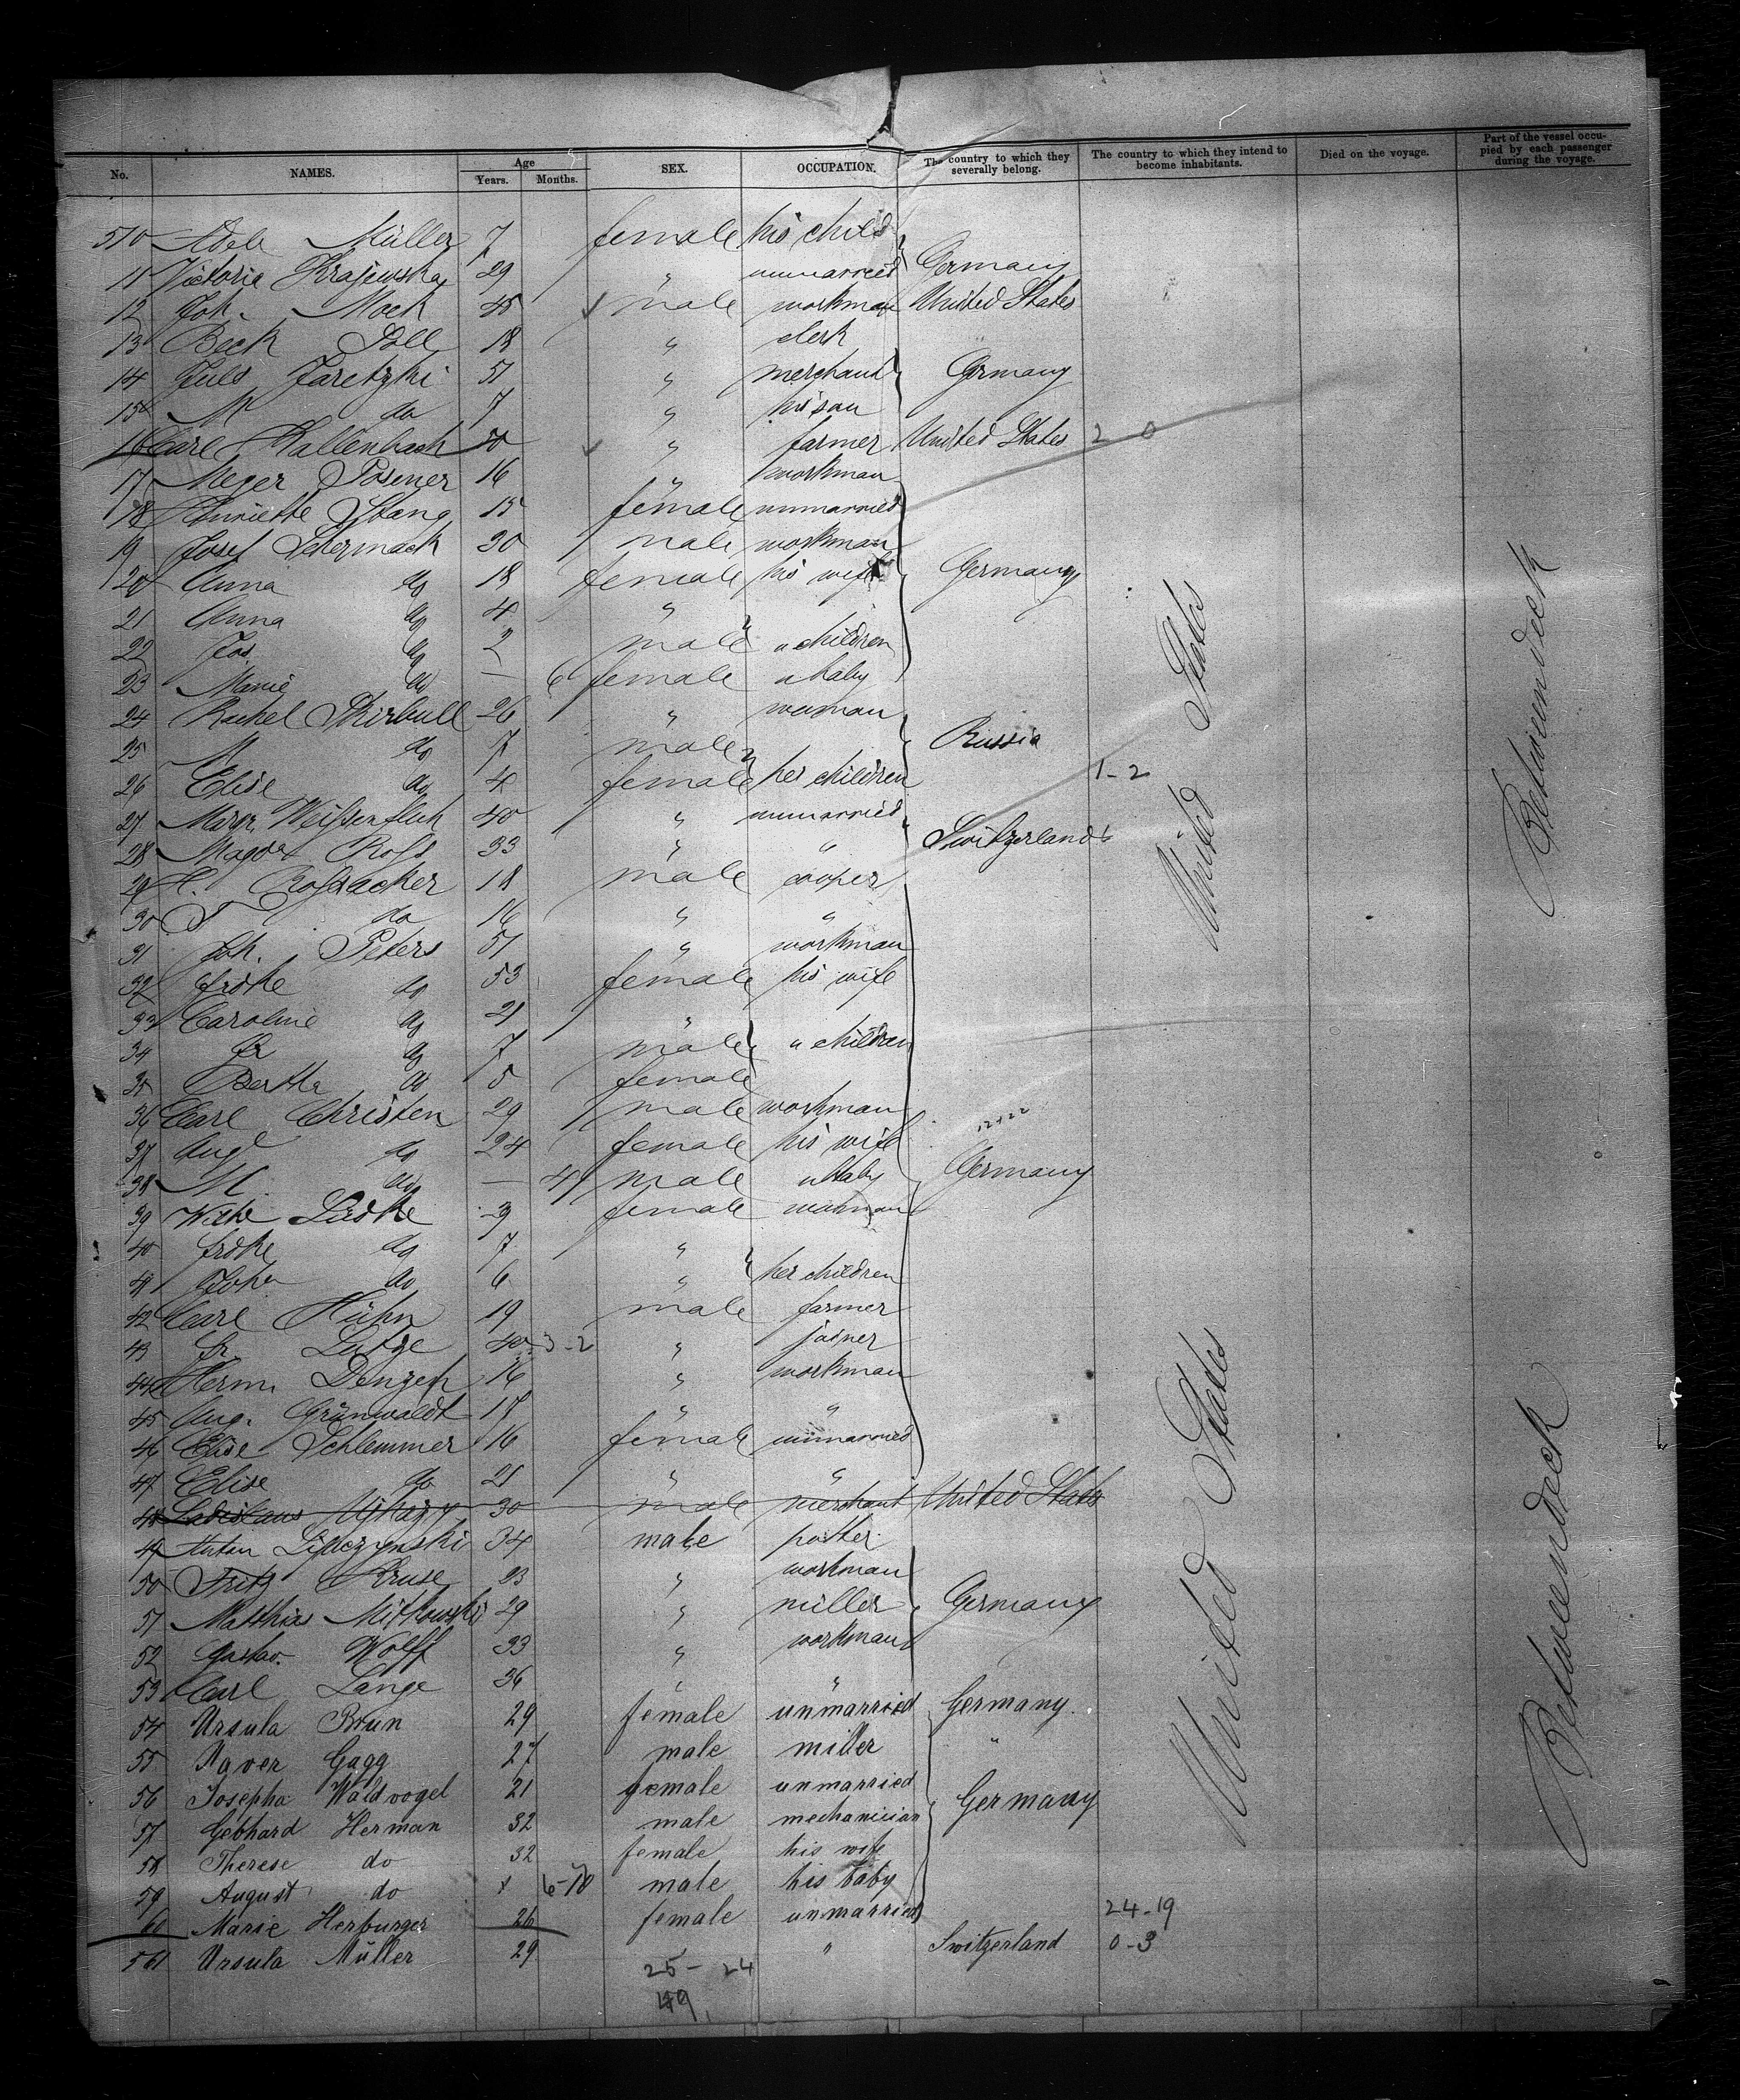 No. NAMES. Age Years. Months. SEX. OCCUPATION. The country to which they severally belong. The country to which they intend to become inhabitants. Died on the voyage. Part of the vessel occupied by each passenger during the voyage.
510 Adele Müller 7 female his child
11 Victoria Krajewska 29 " unmarried Germany
12 Joh. Mock 45 male workman United States
13 Beck 18 " clerk
14 Juls Jaretzki 51 " merchant Germany
15 M do 7 " his son
16 Carl Kallenbach 50 " farmer United States 2 0
17 Meyer Posener 16 " workman
18 Henriette Stang 15 female unmarried
19 Josef Schermack 30 male workman
20 Anna do 18 female his wife Germany
21 Anna do 4 "
22 Jos. do 2 male " children
23 Marie do — 6 female " baby
24 Rachel Skirbull 26 " woman
25 M do 7 male Russia
26 Elise do 4 female her children 1-2
27 Margr. Weißenfluh 40 " unmarried
28 Magda Roß 33 " " Switzerland
29 C. Roßacker 18 male cooper
30 do 16 " "
31 Joh. Peters 51 " workman
32 Frdke do 53 female his wife
33 Caroline do 21 "
34 Fr do 7 male " children
35 Bertha do 5 female
36 Carl Christen 29 male workman
37 Aug do 24 female his wife
38 M. do — 4 male " baby Germany
39 Lüdke female woman
40 Frdke do 7 "
41 do 6 " her children
42 Carl Hühn 19 male farmer
43 Fr. Lutze 40 3-2 " joiner
44 Herm. 16 " workman
45 Aug. Grünwaldt 17 " "
46 Elise Schlemmer 16 female unmarried
47 Elise do 21 " "
48 Ladislaus Ujhazy 30 male merchant United States
49 Anton Lipczynski 34 male potter
50 Fritz Kruse 23 " workman
51 Matthias Mitkowski 29 " miller Germany
52 Gustav. Wolff 33 " workman
53 Carl Lange 36 " "
54 Ursula Brun 29 female unmarried Germany.
55 Xaver Gagg 27 male miller "
56 Josepha Waldvogel 21 female unmarried
57 Gebhard Herman 32 male mechanician Germany
58 Therese do 32 female his wife
59 August do 6-10 male his baby
60 Marie Herburger 26 female unmarried 24-19
561 Ursula Müller 29 " Switzerland 0-3
25-24
49
United States
United States
Betweendeck
Betweendeck